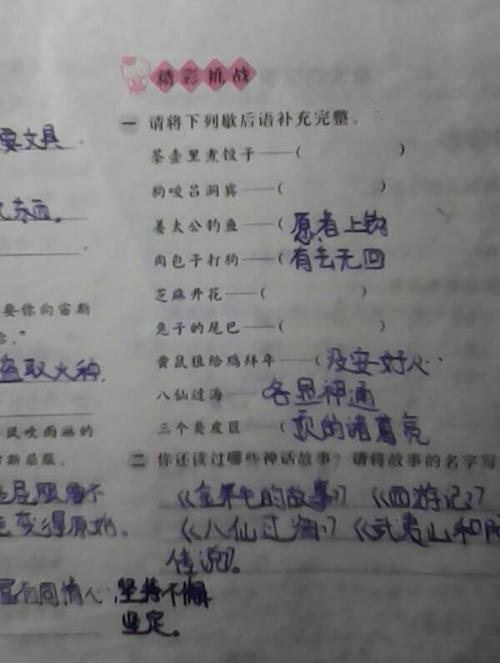 精彩挑战
一 请将下列歇后语补充完整。
茶壶里煮饺子——( )
狗咬吕洞宾——( )
姜太公钓鱼——(愿者上钩
肉包子打狗——(有去无回
芝麻开花——( )
兔子的尾巴——( )
黄鼠狼给鸡拜年——(没安好心
八仙过海——各显神通
三个臭皮匠——(的诸葛亮
二 你还读过哪些神话故事?请将故事的名字写
的故事》《西游记》
《八仙过海》《武夷山和
传说》。
要文具
东西。
要你向宙斯
取火种
风吹雨淋的
斯屈服。
屈服
变得原始。
有同情心;坚持不懈
坚定。